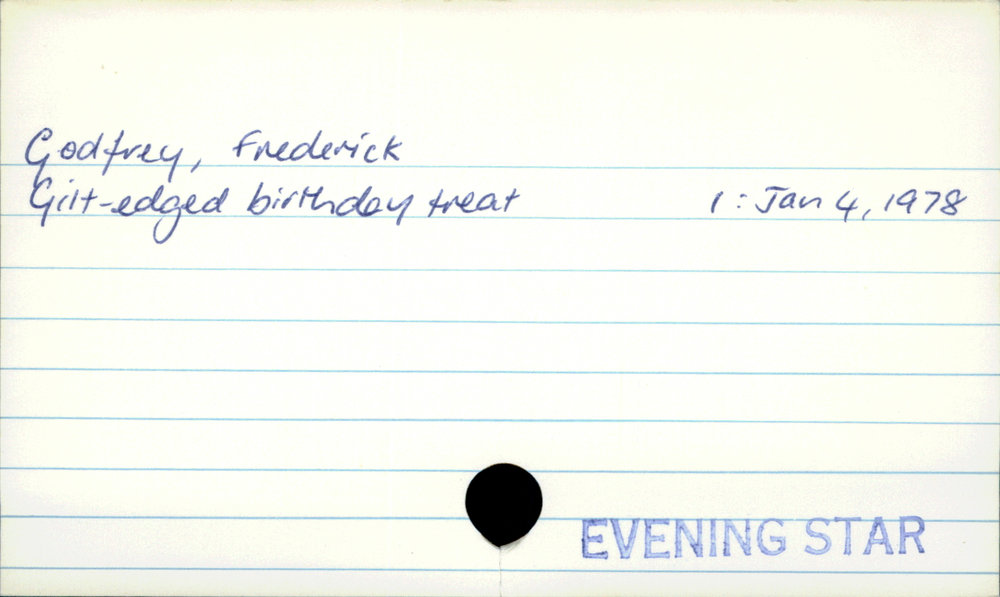 Godfrey, Frederick
Gilt-edged birthday treat 1: Jan 4, 1978
EVENING STAR